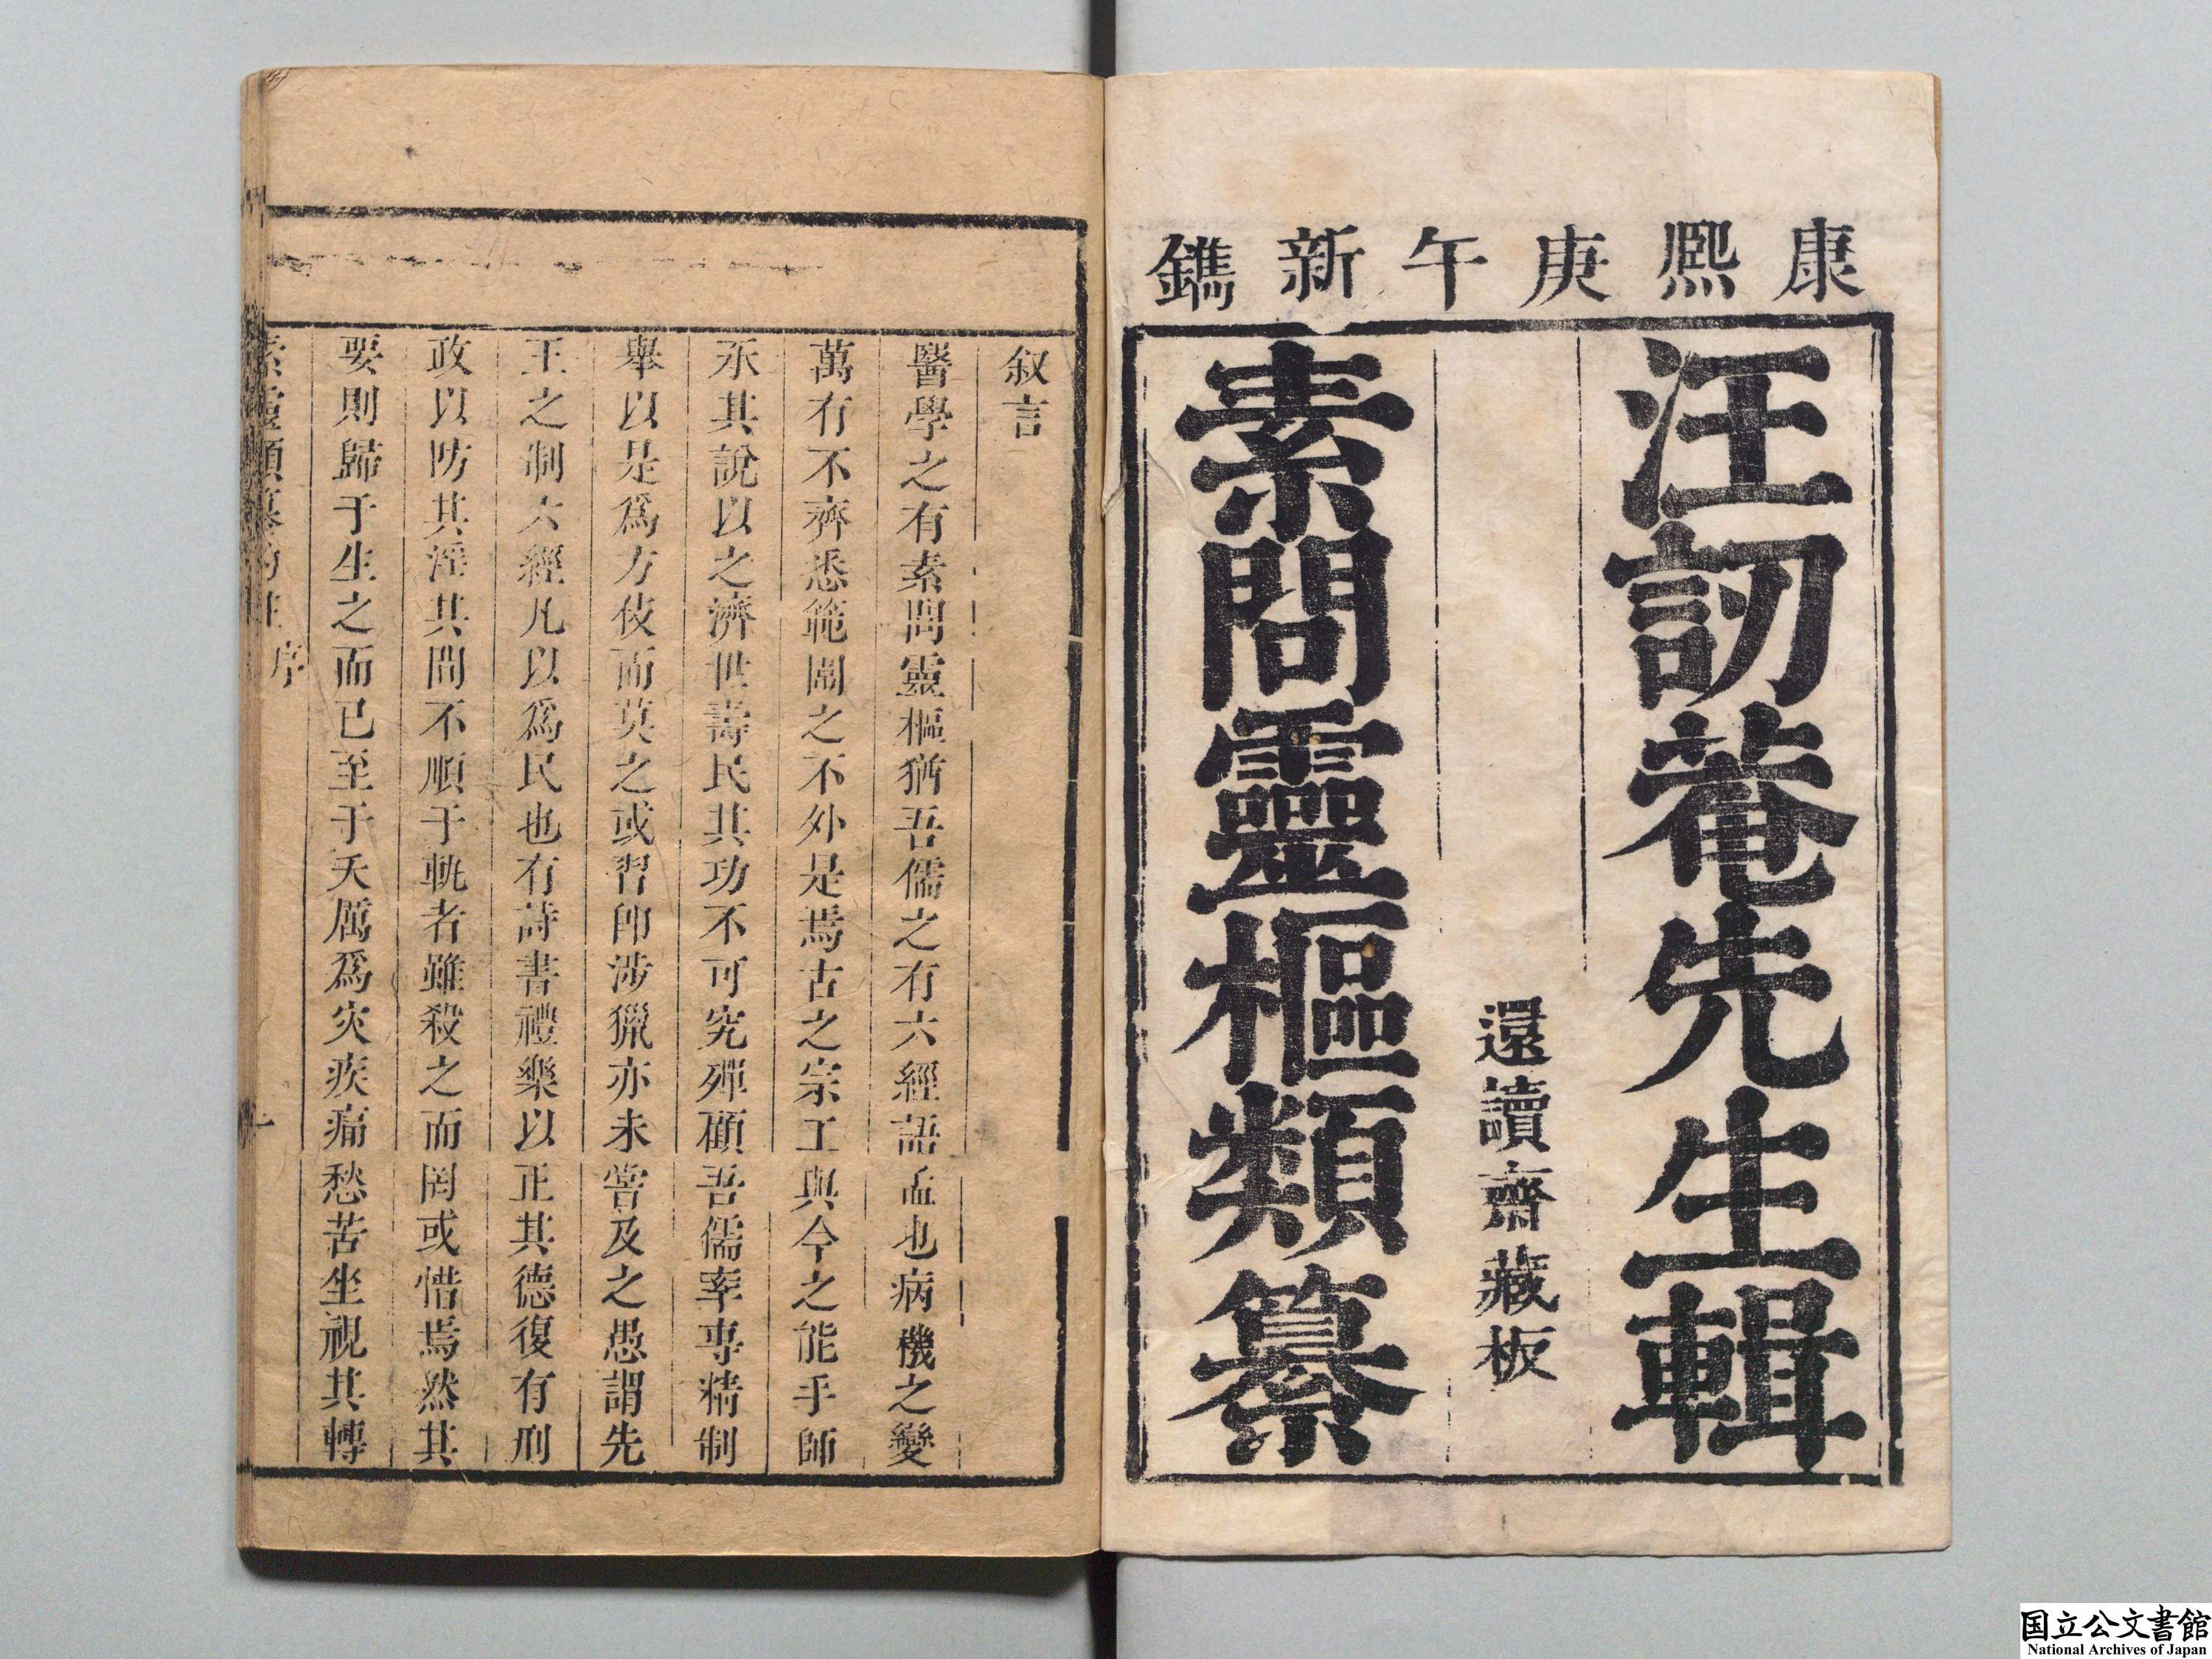 康熙庚午新鐫
汪訒菴先生輯
還讀齋藏板
素問靈樞類纂
叙言
醫學之有素問靈樞猶吾儒之有六經語孟也病機之變
萬有不齊悉範圍之不外是焉古之宗工與今之能手師
承其說以之濟世壽民其功不可究殫顧吾儒率專精制
舉以是爲方伎而莫之或習即涉獵亦未嘗及之愚謂先
王之制六經凡以爲民也有詩書禮樂以正其德復有刑
政以防其淫其間不順于軌者雖殺之而罔或惜焉然其
要則歸于生之而已至于夭厲爲灾疾痛愁苦坐視其轉
素靈類纂約註 序 一
国立公文書館
National Archives of Japan